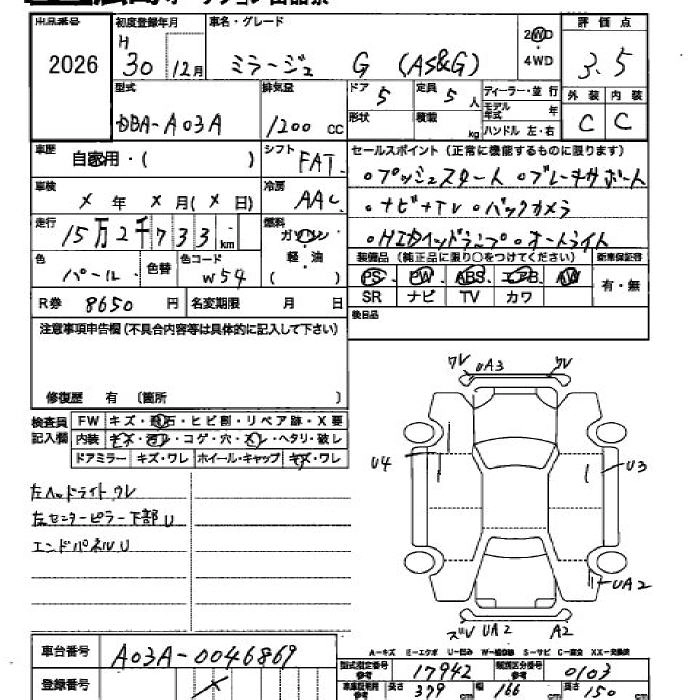 出品番号 初度登録年月 車名・グレード 評価点
2026 H 30 12月 ミラージュ G (AS&G) 2WD ・ 4WD 3.5
型式 排気量 ドア 5 定員 5 人 ディーラー・並行 外装 内装
DBA-A03A 1200 cc 形状 積載 kg モデル年式 年 ハンドル 左・右 C C
車歴 自家用・( ) シフト FAT セールスポイント (正常に機能するものに限ります)
・プッシュスタート ・ブレーキサポート
車検 × 年 × 月 ( × 日) 冷房 AAC ・ナビ+TV ・バックカメラ
走行 15万2千733 km 燃料 ガソリン・軽・油 ( ) ・HIDヘッドランプ ・オートライト
色 パール 色替 色コード W54 装備品 (純正品に限り○をつけてください) 新車保証書
PS ・ PW ・ ABS ・ エアB ・ AW 有・無
R券 8650 円 名変期限 月 日 SR ナビ TV カワ
注意事項申告欄 (不具合内容等は具体的に記入して下さい) 後日品
修復歴 有 〔箇所 〕
検査員記入欄 FW キズ・飛石・ヒビ割・リペア跡・X要
内装 キズ・汚れ・コゲ・穴・スレ・ヘタリ・破レ
ドアミラー キズ・ワレ ホイール・キャップ キズ・ワレ
ワレ UA3 ワレ
U4 U3
左ヘッドライト ワレ
左センターピラー下部 U
エンドパネル U
UA2
ズレ UA2 A2
A-キズ E-エクボ U-凹み W-補修跡 S-サビ C-腐蝕 XX-交換済
車台番号 A03A-0046869
型式指定番号 参考 17942 類別区分番号 参考 0103
登録番号 長さ 379 cm 幅 166 cm 高さ 150 cm